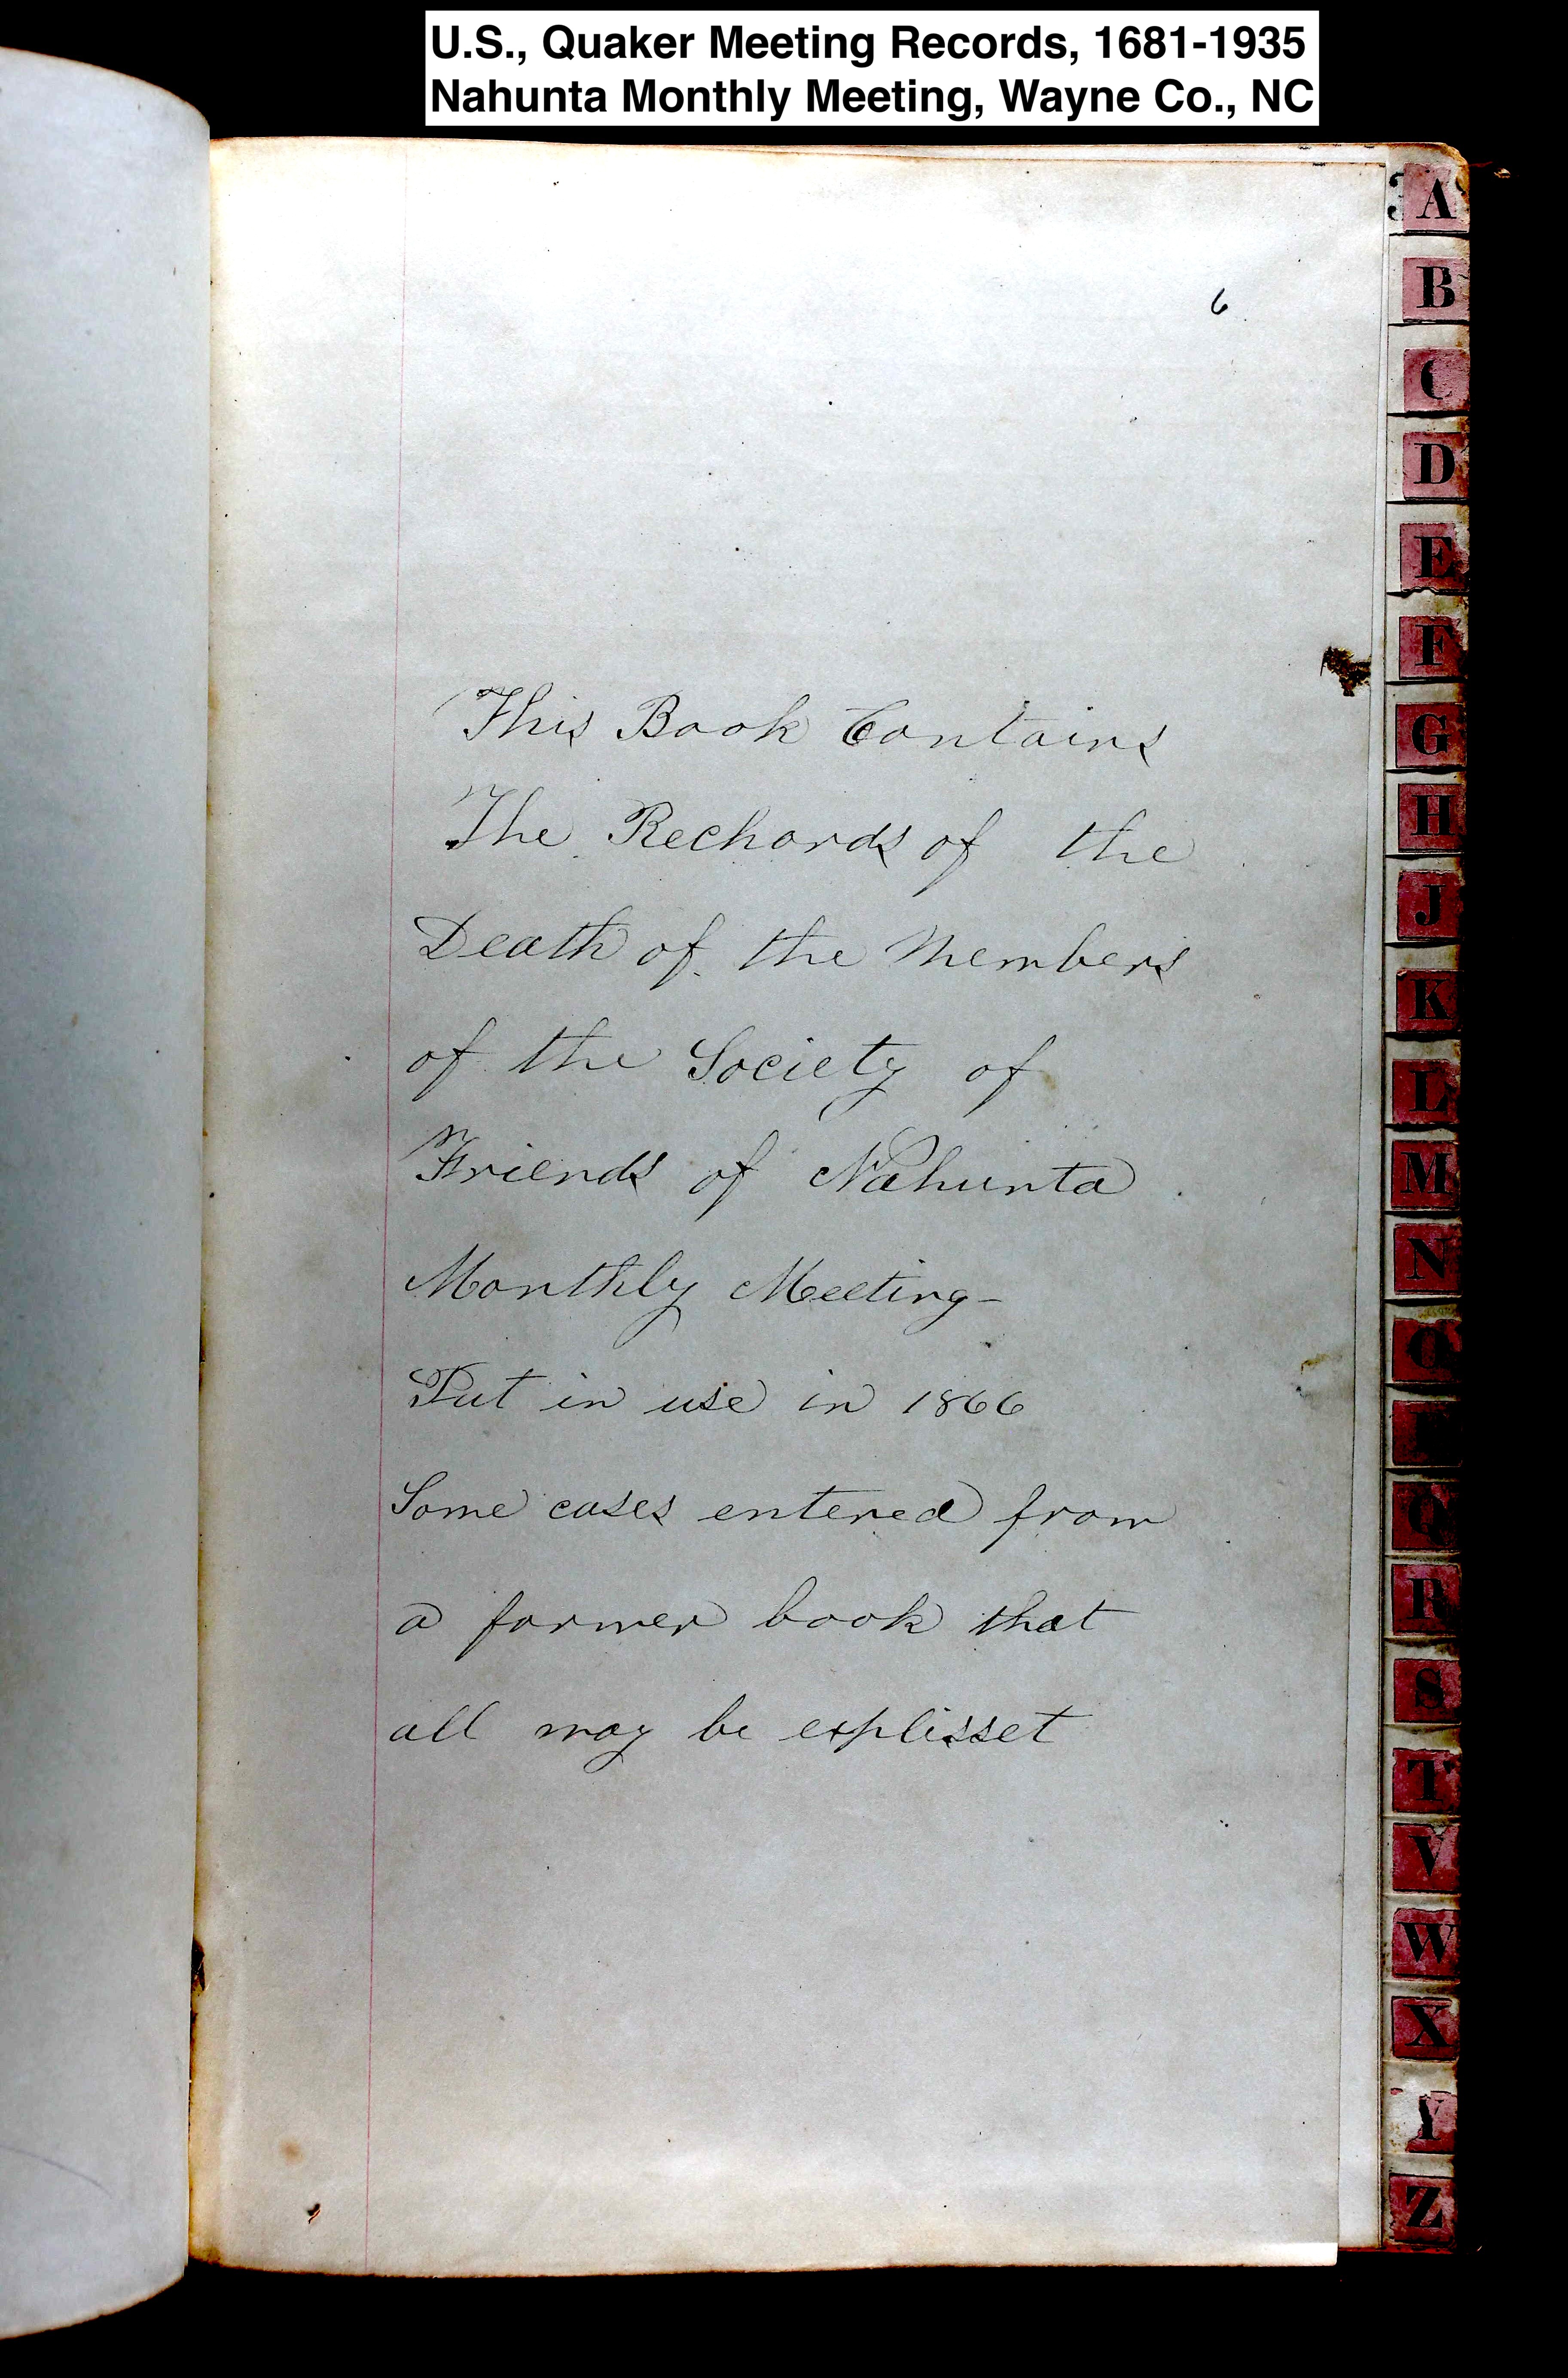 U.S., Quaker Meeting Records, 1681-1935
Nahunta Monthly Meeting, Wayne Co., NC
6
This Book Contains
The Rechords of the
Death of the Members
of the Society of
Friends of Nahunta
Monthly Meeting-
Put in use in 1866
Some cases entered from
a former book that
all may be explisset
A
B
C
D
E
F
G
H
J
K
L
M
N
O
Q
R
S
T
V
W
X
Y
Z